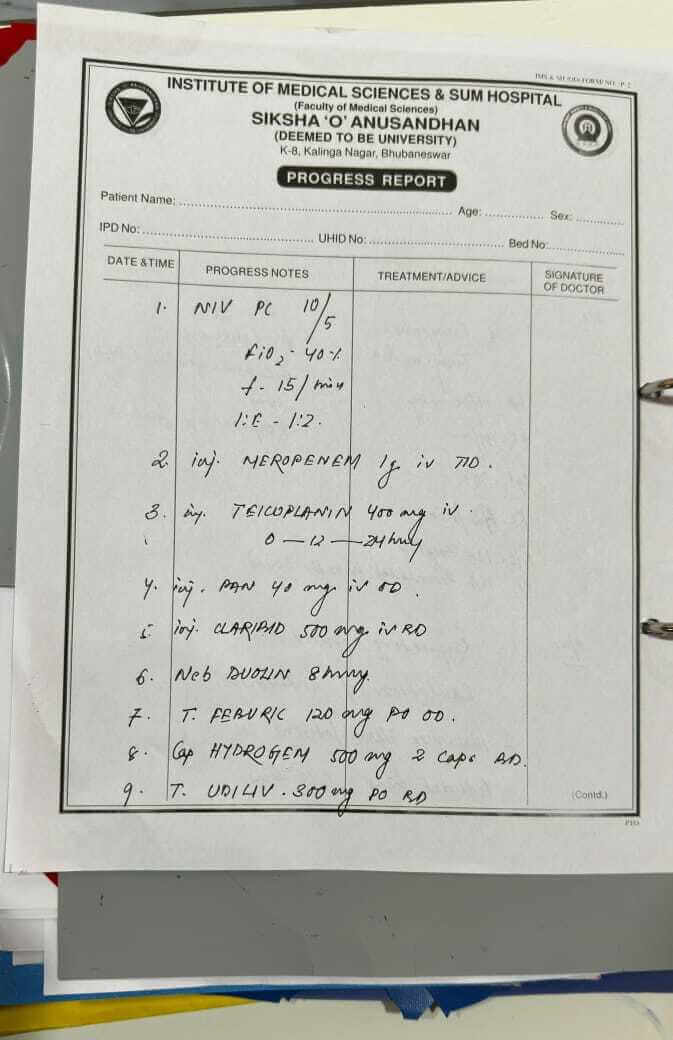 INSTITUTE OF MEDICAL SCIENCES & SUM HOSPITAL
(Faculty of Medical Sciences)
SIKSHA 'O' ANUSANDHAN
(DEEMED TO BE UNIVERSITY)
K-8, Kalinga Nagar, Bhubaneswar
PROGRESS REPORT
Patient Name: Age: Sex:
IPD No: UHID No: Bed No:
DATE & TIME PROGRESS NOTES TREATMENT/ADVICE SIGNATURE OF DOCTOR
1. NIV PC 10/5
FiO2 - 40%
f - 15/min
I:E - 1:2.
2. inj. MEROPENEM 1g iv TID.
3. inj. TEICOPLANIN 400 mg iv.
0 — 12 — 24 hrly
4. inj. PAN 40 mg iv OD.
5. inj. CLARIBID 500 mg iv BD
6. Neb DUOLIN 8 hrly.
7. T. FEBURIC 120 mg PO OD.
8. Cap HYDROGEM 500 mg 2 caps BD.
9. T. UDILIV. 300 mg PO BD
(Contd.)
PTO